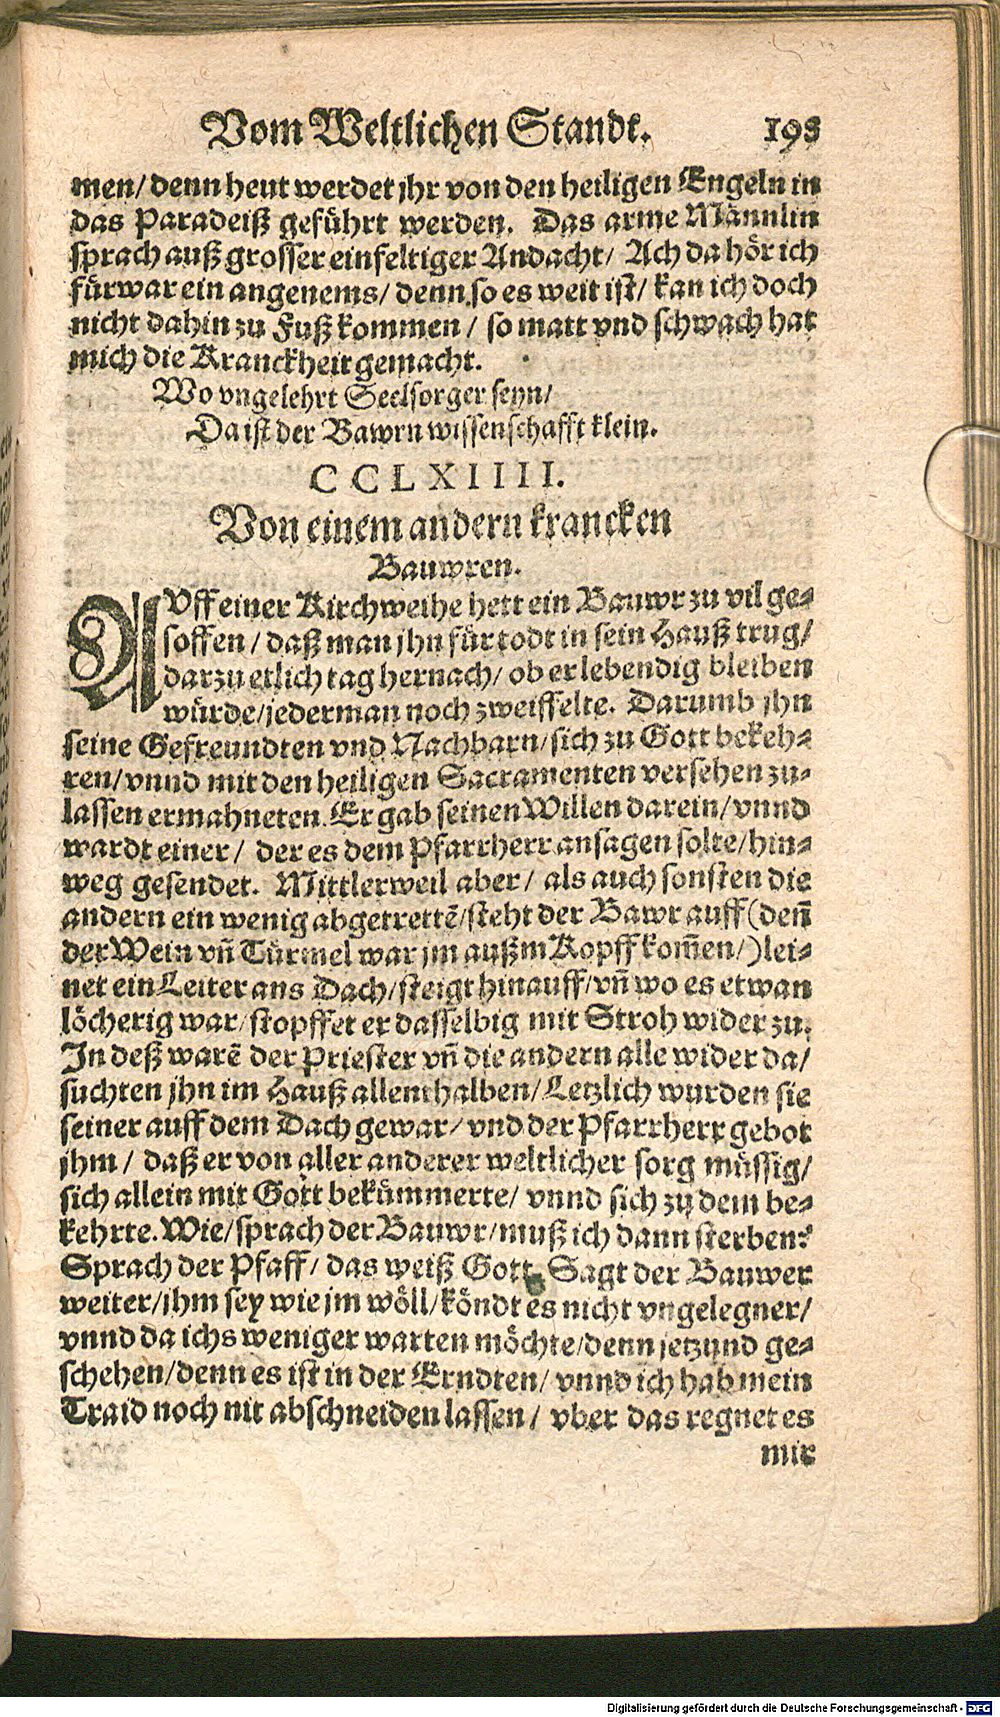 Vom Weltlichen Standt. 193
men/ denn heut werdet jhr von den heiligen Engeln in
das Paradeiß geführt werden. Das arme Männlin
sprach auß grosser einfeltiger Andacht/ Ach da hör ich
fürwar ein angenems/ denn so es weit ist/ kan ich doch
nicht dahin zu Fuß kommen / so matt vnd schwach hat
mich die Kranckheit gemacht.
Wo vngelehrt Seelsorger seyn/
Da ist der Bawrn wissenschafft klein.
CCLXIIII.
Von einem andern krancken
Bauwren.
AVff einer Kirchweihe hett ein Bauwr zu vil ge-
soffen / daß man jhn für todt in sein Hauß trug/
darzu etlich tag hernach/ ob er lebendig bleiben
würde/ jederman noch zweiffelte. Darumb jhn
seine Gefreundten vnd Nachbarn/ sich zu Gott bekeh-
ren/ vnnd mit den heiligen Sacramenten versehen zu-
lassen ermahneten. Er gab seinen Willen darein/ vnnd
wardt einer/ der es dem Pfarrherr ansagen solte/ hin-
weg gesendet. Mittlerweil aber/ als auch sonsten die
andern ein wenig abgetrettē/ steht der Bawr auff (den̄
der Wein vn̄ Türmel war jm außm Kopff kom̄en/) lei-
net ein Leiter ans Dach/ steigt hinauff/ vn̄ wo es etwan
löcherig war/ stopffet er dasselbig mit Stroh wider zu.
In deß warē der Priester vn̄ die andern alle wider da/
suchten jhn im Hauß allenthalben/ Letzlich wurden sie
seiner auff dem Dach gewar/ vnd der Pfarrherr gebot
jhm / daß er von aller anderer weltlicher sorg müssig/
sich allein mit Gott bekümmerte/ vnnd sich zu dem be-
kehrte. Wie/ sprach der Bauwr/ muß ich dann sterben?
Sprach der Pfaff/ das weiß Gott. Sagt der Bauwer
weiter/ jhm sey wie jm wöll/ köndt es nicht vngelegner/
vnnd da ichs weniger warten möchte/ denn jetzund ge-
schehen/ denn es ist in der Erndten/ vnnd ich hab mein
Traid noch nit abschneiden lassen / vber das regnet es
mir
Digitalisierung gefördert durch die Deutsche Forschungsgemeinschaft - DFG